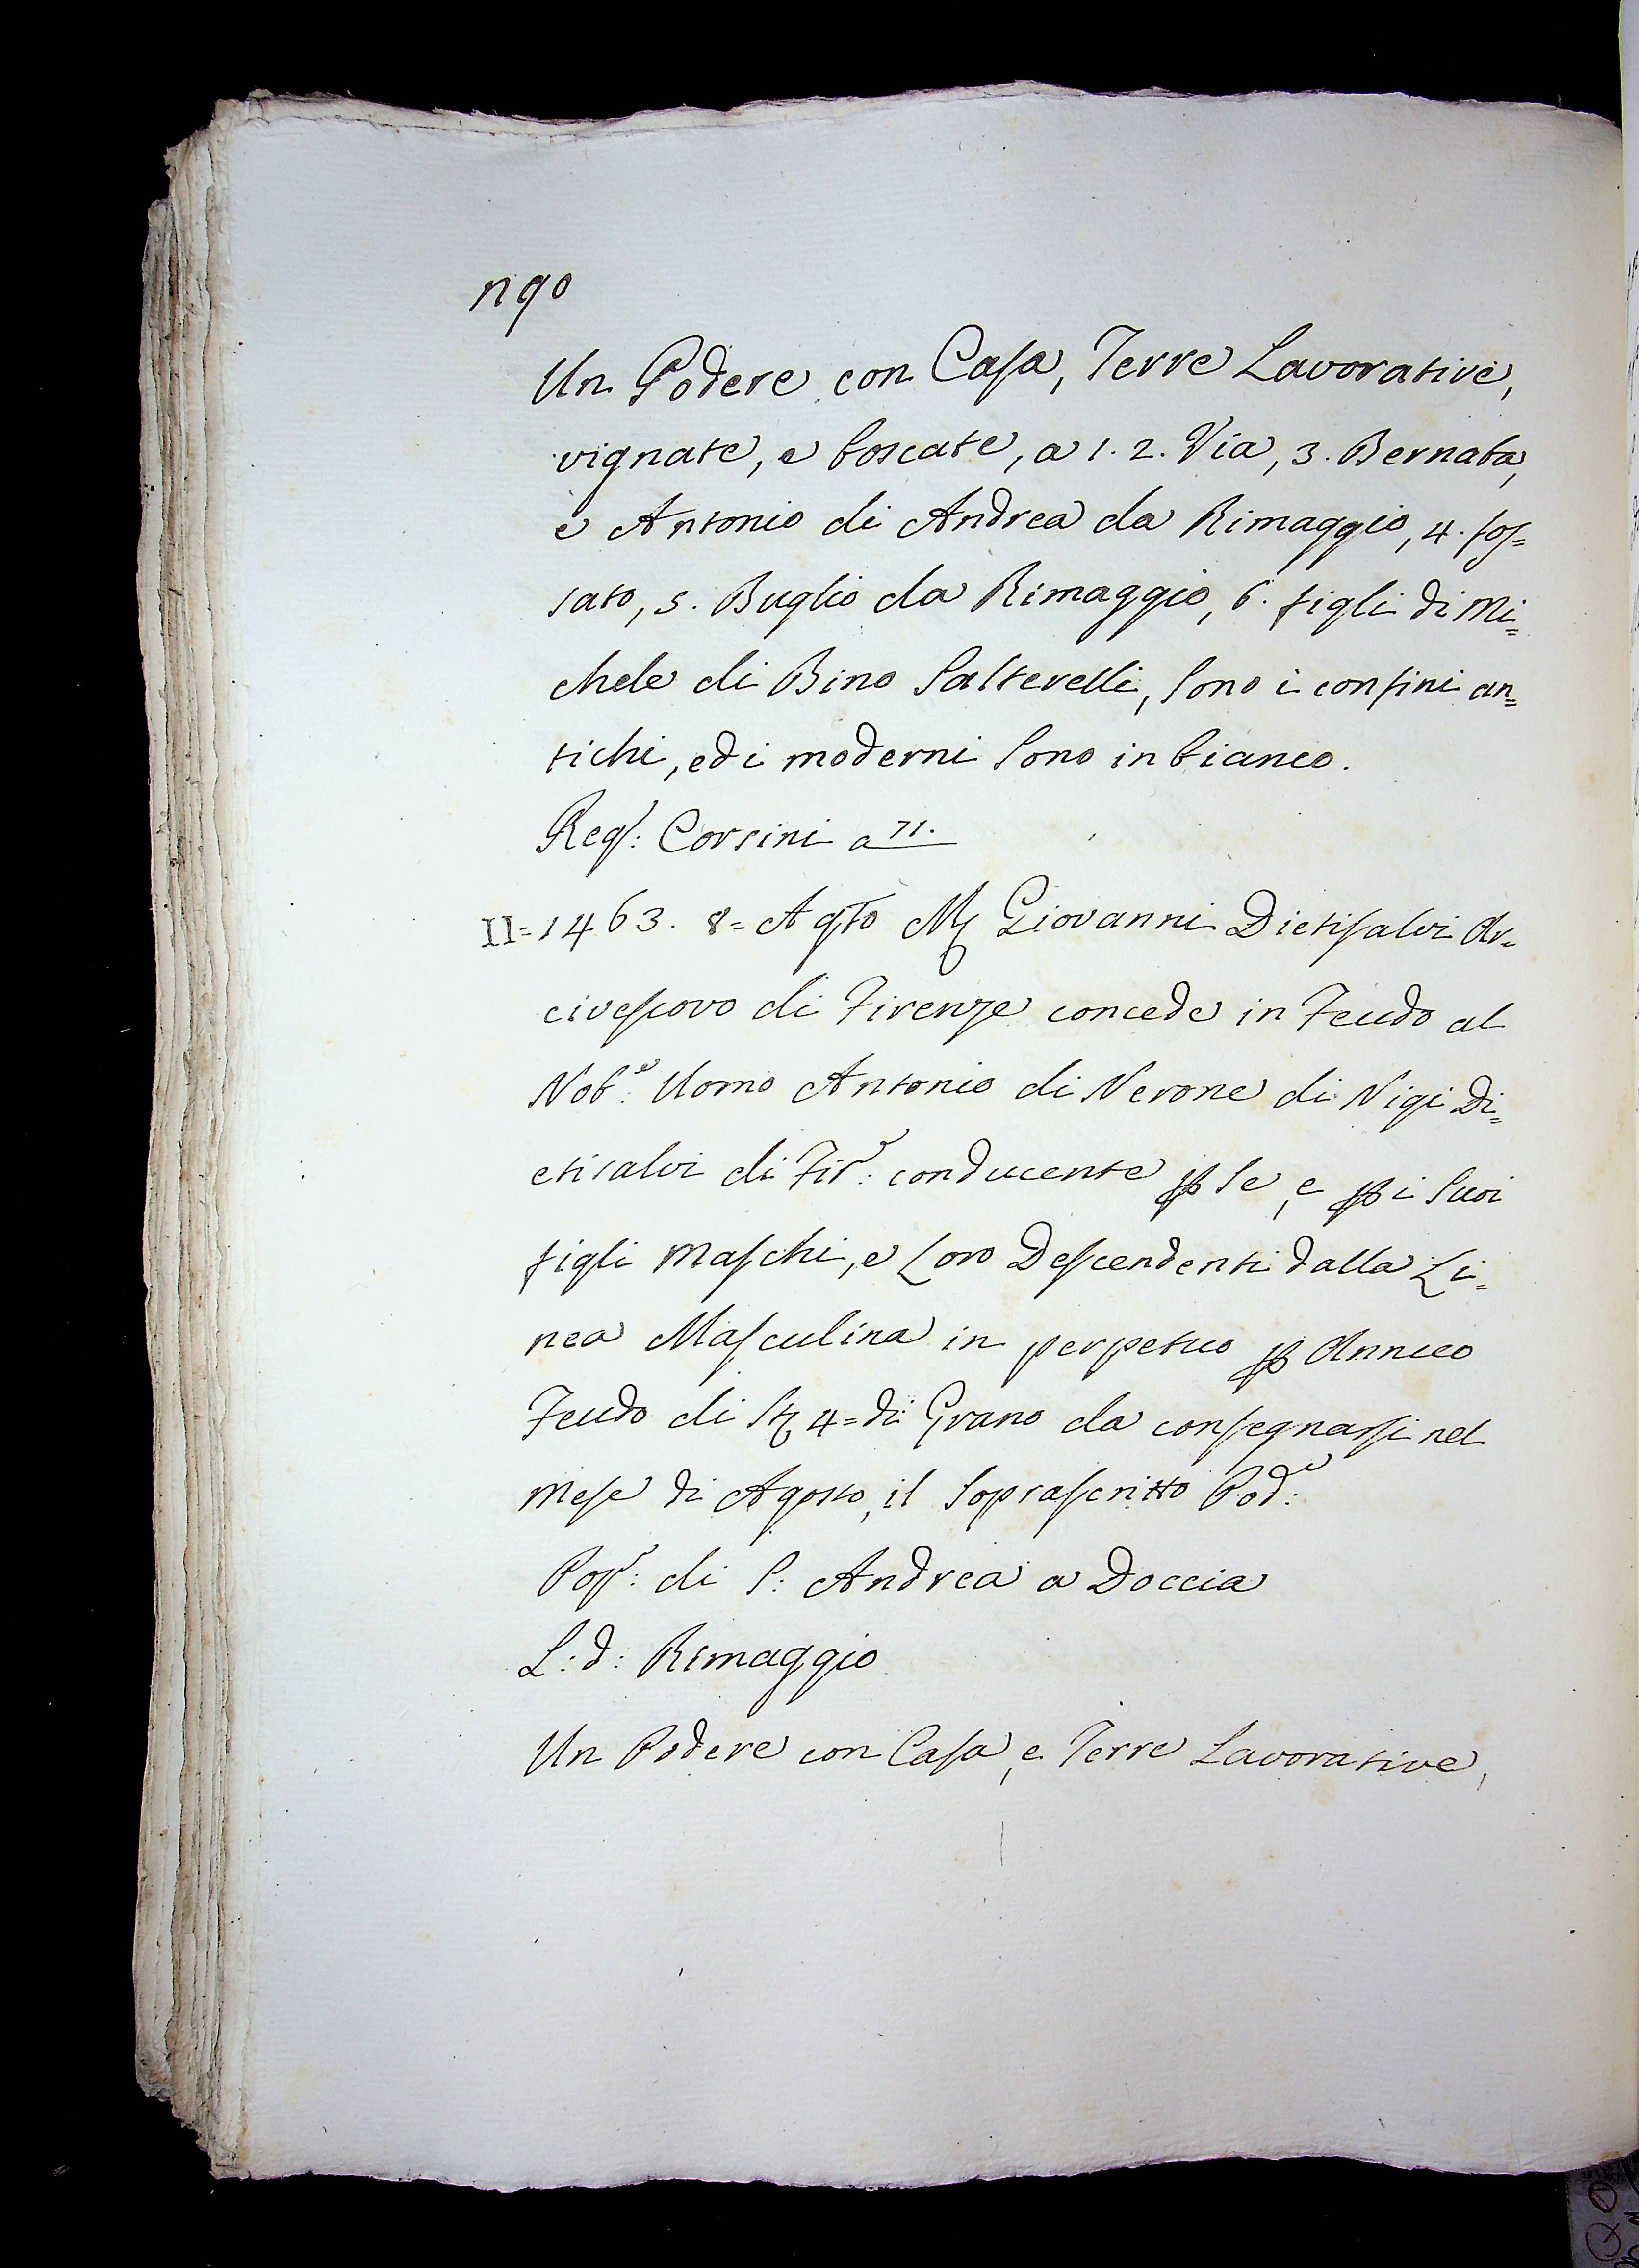 n90
Un Podere con Casa, Terre Lavorative,
vignate, e boscate, a 1. 2. Via, 3. Bernaba,
e Antonio di Andrea da Rimaggio, 4. fos=
sato, 5. Buglio da Rimaggio, 6. figli di Mi=
chele di Bino Salterelli, sono i confini an=
tichi, ed i moderni sono in bianco.
Reg.: Corsini a 71.
II=1463. 8= Agto M Giovanni Dietisalvi Ar=
civescovo di Firenze concede in Feudo al
Nob.e Uomo Antonio di Nerone di Nigi Di=
etisalvi di Fir.e: conducente p se, e p i suoi
figli Maschi, e Loro Descendenti dalla Li=
nea Masculina in perpetuo p Annuo
Feudo di St 4= di Grano da consegnarsi nel
Mese di Agosto, il soprascritto Pod.e:
Pop.: di S: Andrea a Doccia
L: d: Rimaggio
Un Podere con Casa, e Terre Lavorative,